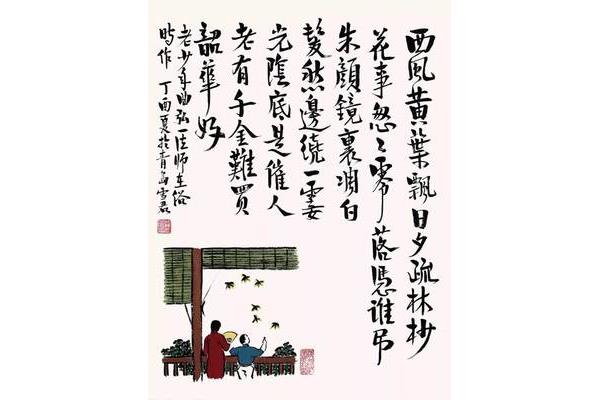 西風黃葉飄日夕疏林杪
花事怱〻零落憑誰吊
朱顏鏡裏凋白
髮愁邊繞一霎
光陰底是催人
老有千金難買
韶華好
老少年曲弘一法師在俗
時作 丁酉夏於青島雪君